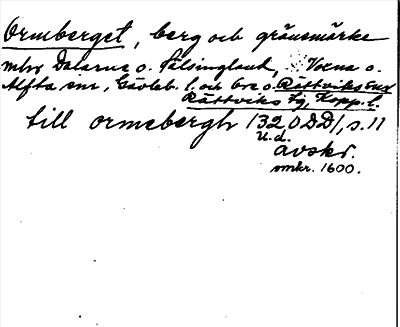 Ormberget, berg och gränsmärke
mln Dalarne o. Hälsingland, Voxna o.
Alfta snr, Gävleb. l. och Ore o. Rättviks snr
Rättviks tg, Kopp. l.
till ormebergh 1320 DD1, s. 11
u. d.
avskr.
omkr. 1600.